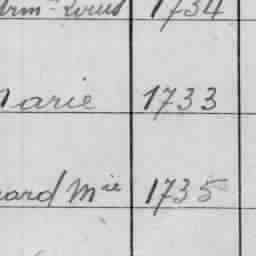 Arm-Louis 1734
Marie 1733
ard Mie 1735